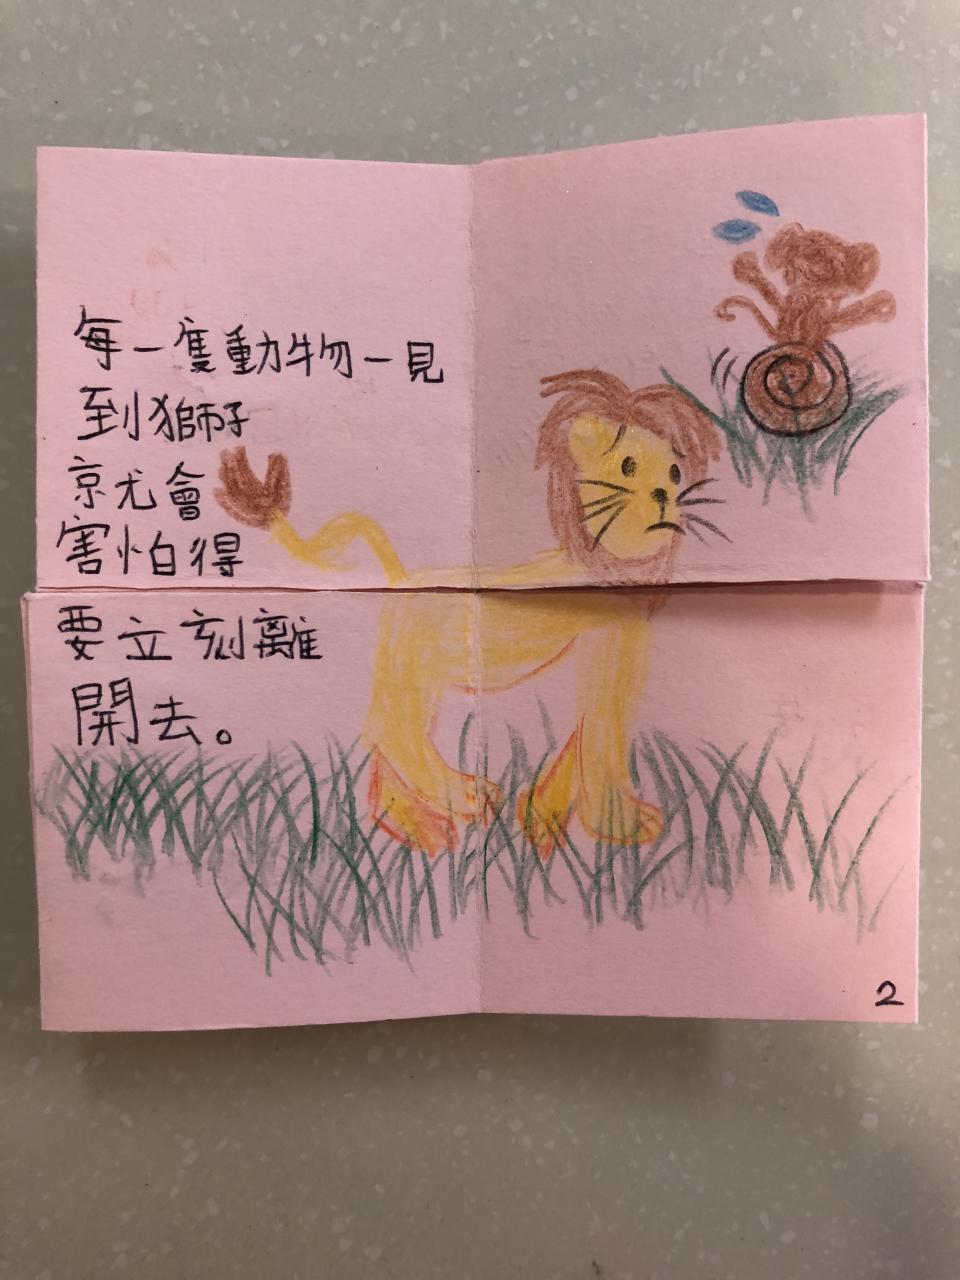 每一隻動物一見
到獅子
就會
害怕得
要立刻離
開去。
2